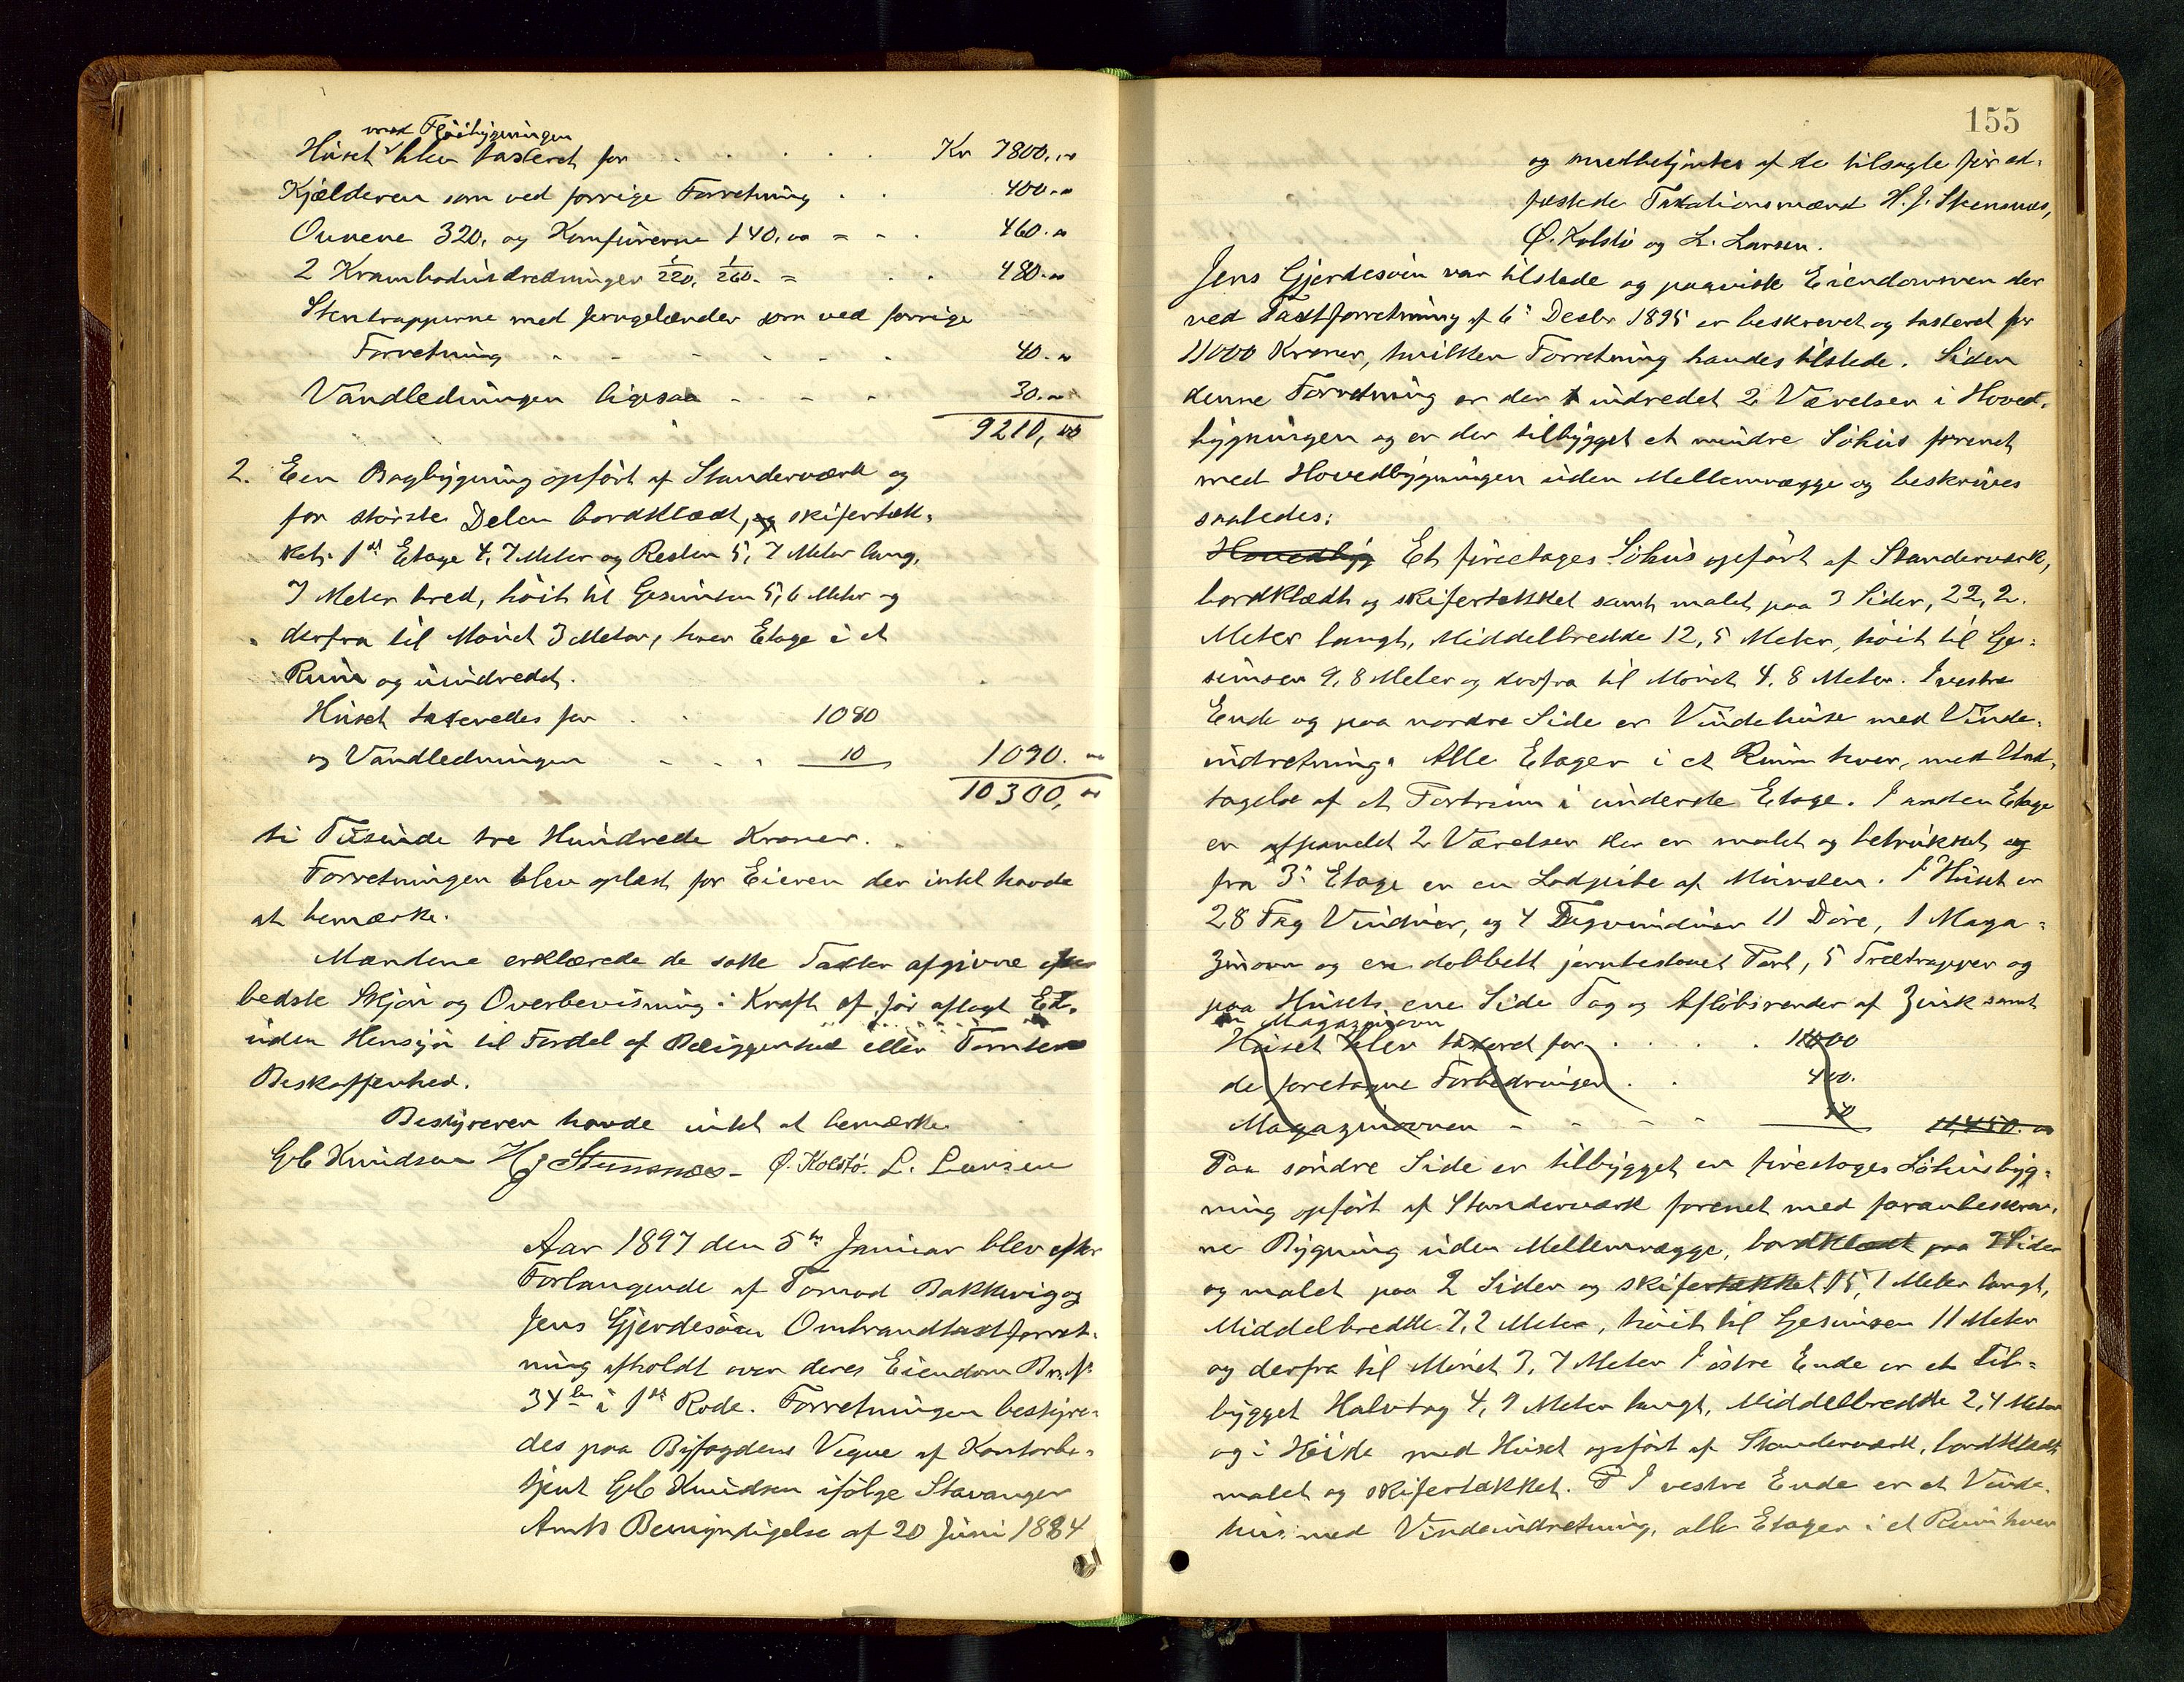 med Fløibygningen
Huset blev taxteret for . . . . . Kr 7800.00
Kjælderen som ved forrige Forretning . . 400.00
Ovnene 320, og Komfurerne 140,00 = - . 460.00
2 Krambodindredninger 1/220, 1/260. = . . 480.00
Stentrapperne med Jerngelænder som ved forrige
Forretning - - - - - - 40.00
Vandledningen ligesaa - - - 30.00
9210,00
2. Een Bagbygning opført af Standerværk og
for største Delen bordklædt, og skifertæk-
ket. 1ste Etage 4,7 Meter og Resten 5,7 Meter lang,
7 Meter bred, høit til Gesimsen 5,6 Meter og
derfra til Mønet 3 Meter, hver Etage i et
Rum og uindredet.
Huset taxeredes for . . 1080
og Vandledningen - - - 10 1090.00
10300,00
ti Tusinde tre Hundrede Kroner.
Forretningen blev oplæst for Eieren der intet havde
at bemærke.
Mændene erklærede de satte Taxter afgivne efter
bedste Skjøn og Overbevisning i Kraft af før aflagt Ed.
uden Hensyn til Fordel af Beliggenhed eller Tomtens
Beskaffenhed.
Bestyreren havde intet at bemærke
Knudsen H J Stensnæs - Ø. Kolstø. L. Larsen
Aar 1897 den 5te Januar blev efter
Forlangende af Tormod Bakkevig og
Jens Gjerdesøen Ombrandtaxtforret-
ning afholdt over deres Eiendom Br. No
34 i 1ste Rode. Forretningen bestyre-
des paa Byfogdens Vegne af Kontorbe-
tjent Knudsen ifølge Stavanger
Amts Bemyndigelse af 20 Juni 1884
155
og medbetjentes af de tilsagte før ed-
fæstede Taxationsmænd H. J. Stensnæs,
Ø. Kolstø og L. Larsen.
Jens Gjerdesøen var tilstede og paaviste Eiendommen der
ved Taxtforretning af 6te Decbr 1895 er beskrevet og taxteret for
11000 Kroner, hvilken Forretning havdes tilstede. Siden
denne Forretning er der indredet 2 Værelser i Hoved-
bygningen og er der tilbygget et mindre Søhus forenet
med Hovedbygningen uden Mellemvægge og beskrives
saaledes:
Hovedbyg Et fireetages Søhus opført af Standerværk,
bordklædt og skifertækket samt malet paa 3 Sider, 22,2.
Meter langt, Middelbredde 12,5 Meter, høit til Ge-
simsen 9,8 Meter og derfra til Mønet 4,8 Meter. I vestre
Ende og paa nordre Side er Vindehuse med Vinde-
indretning. Alle Etager i et Rum hver, med Und-
tagelse af et Fortrum i underste Etage. I anden Etage
er afpanelt 2 Værelser der er malet og betrukket og
fra 3die Etage er en Lodpibe af Mursten. I Huset er
28 Fag Vinduer, og 4 Tagvinduer 11 Døre, 1 Maga-
zinovn og en dobbelt jernbeslaaet Port, 5 Trætrapper og
paa Husets ene Side Tag og Afløbsrender af Zink samt
en Magazinovn
Huset blev taxeret for . . . . . 11000
de foretagne Forbedringer . . 400.
Magazinovnen - - - - 50 11,450.00
Paa søndre Side er tilbygget en fireetages Søhusbyg-
ning opført af Standerværk forenet med foranbeskrev-
ne Bygning uden Mellemvægge, bordklædt paa Sider
og malet paa 2 Sider og skifertækket 15,1 Meter langt,
Middelbredde 7,2 Meter, høit til Gesimsen 11 Meter
og derfra til Mønet 3,7 Meter I østre Ende er et Til-
bygget Halvtag 4,9 Meter langt, Middelbredde 2,4 Meter
og i Høide med Huset opført af Standerværk, bordklædt
malet og skifertækket. I vestre Ende er et Vinde-
hus med Vindeindretning, alle Etager i et Rum hver